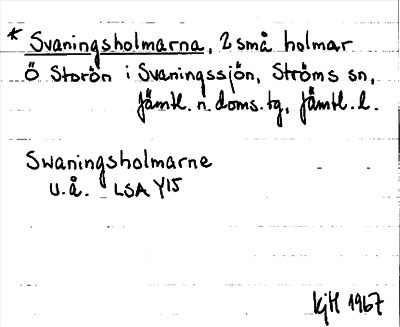 * Svaningsholmarna, 2 små holmar
Ö Storön i Svaningssjön, Ströms sn,
Jämtl. n. doms. tg, Jämtl. l.
Swaningsholmarne
u.å. LSA Y15
KjH 1967